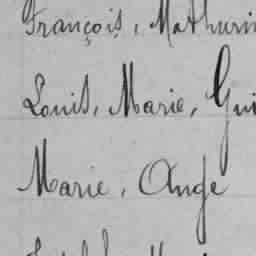 François, Mathurin
Louis, Marie, Gui
Marie, Ange